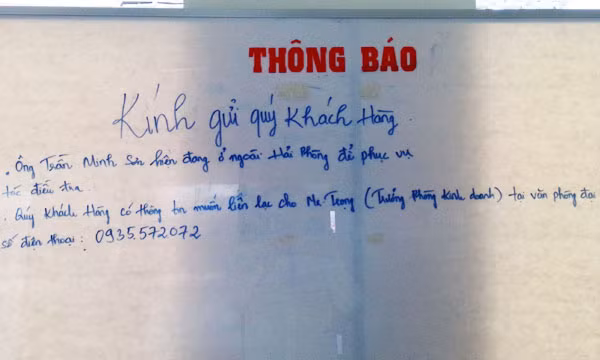 THÔNG BÁO
Kính gửi quý Khách Hàng.
. Ông Trần Minh Sơn hiện đang ở ngoài Hải Phòng để phục vụ
tác điều tra.
. Quý Khách Hàng có thông tin muốn liên lạc cho Mr. Trọng (Trưởng Phòng Kinh doanh) tại văn phòng đại
số điện thoại : 0935.572072